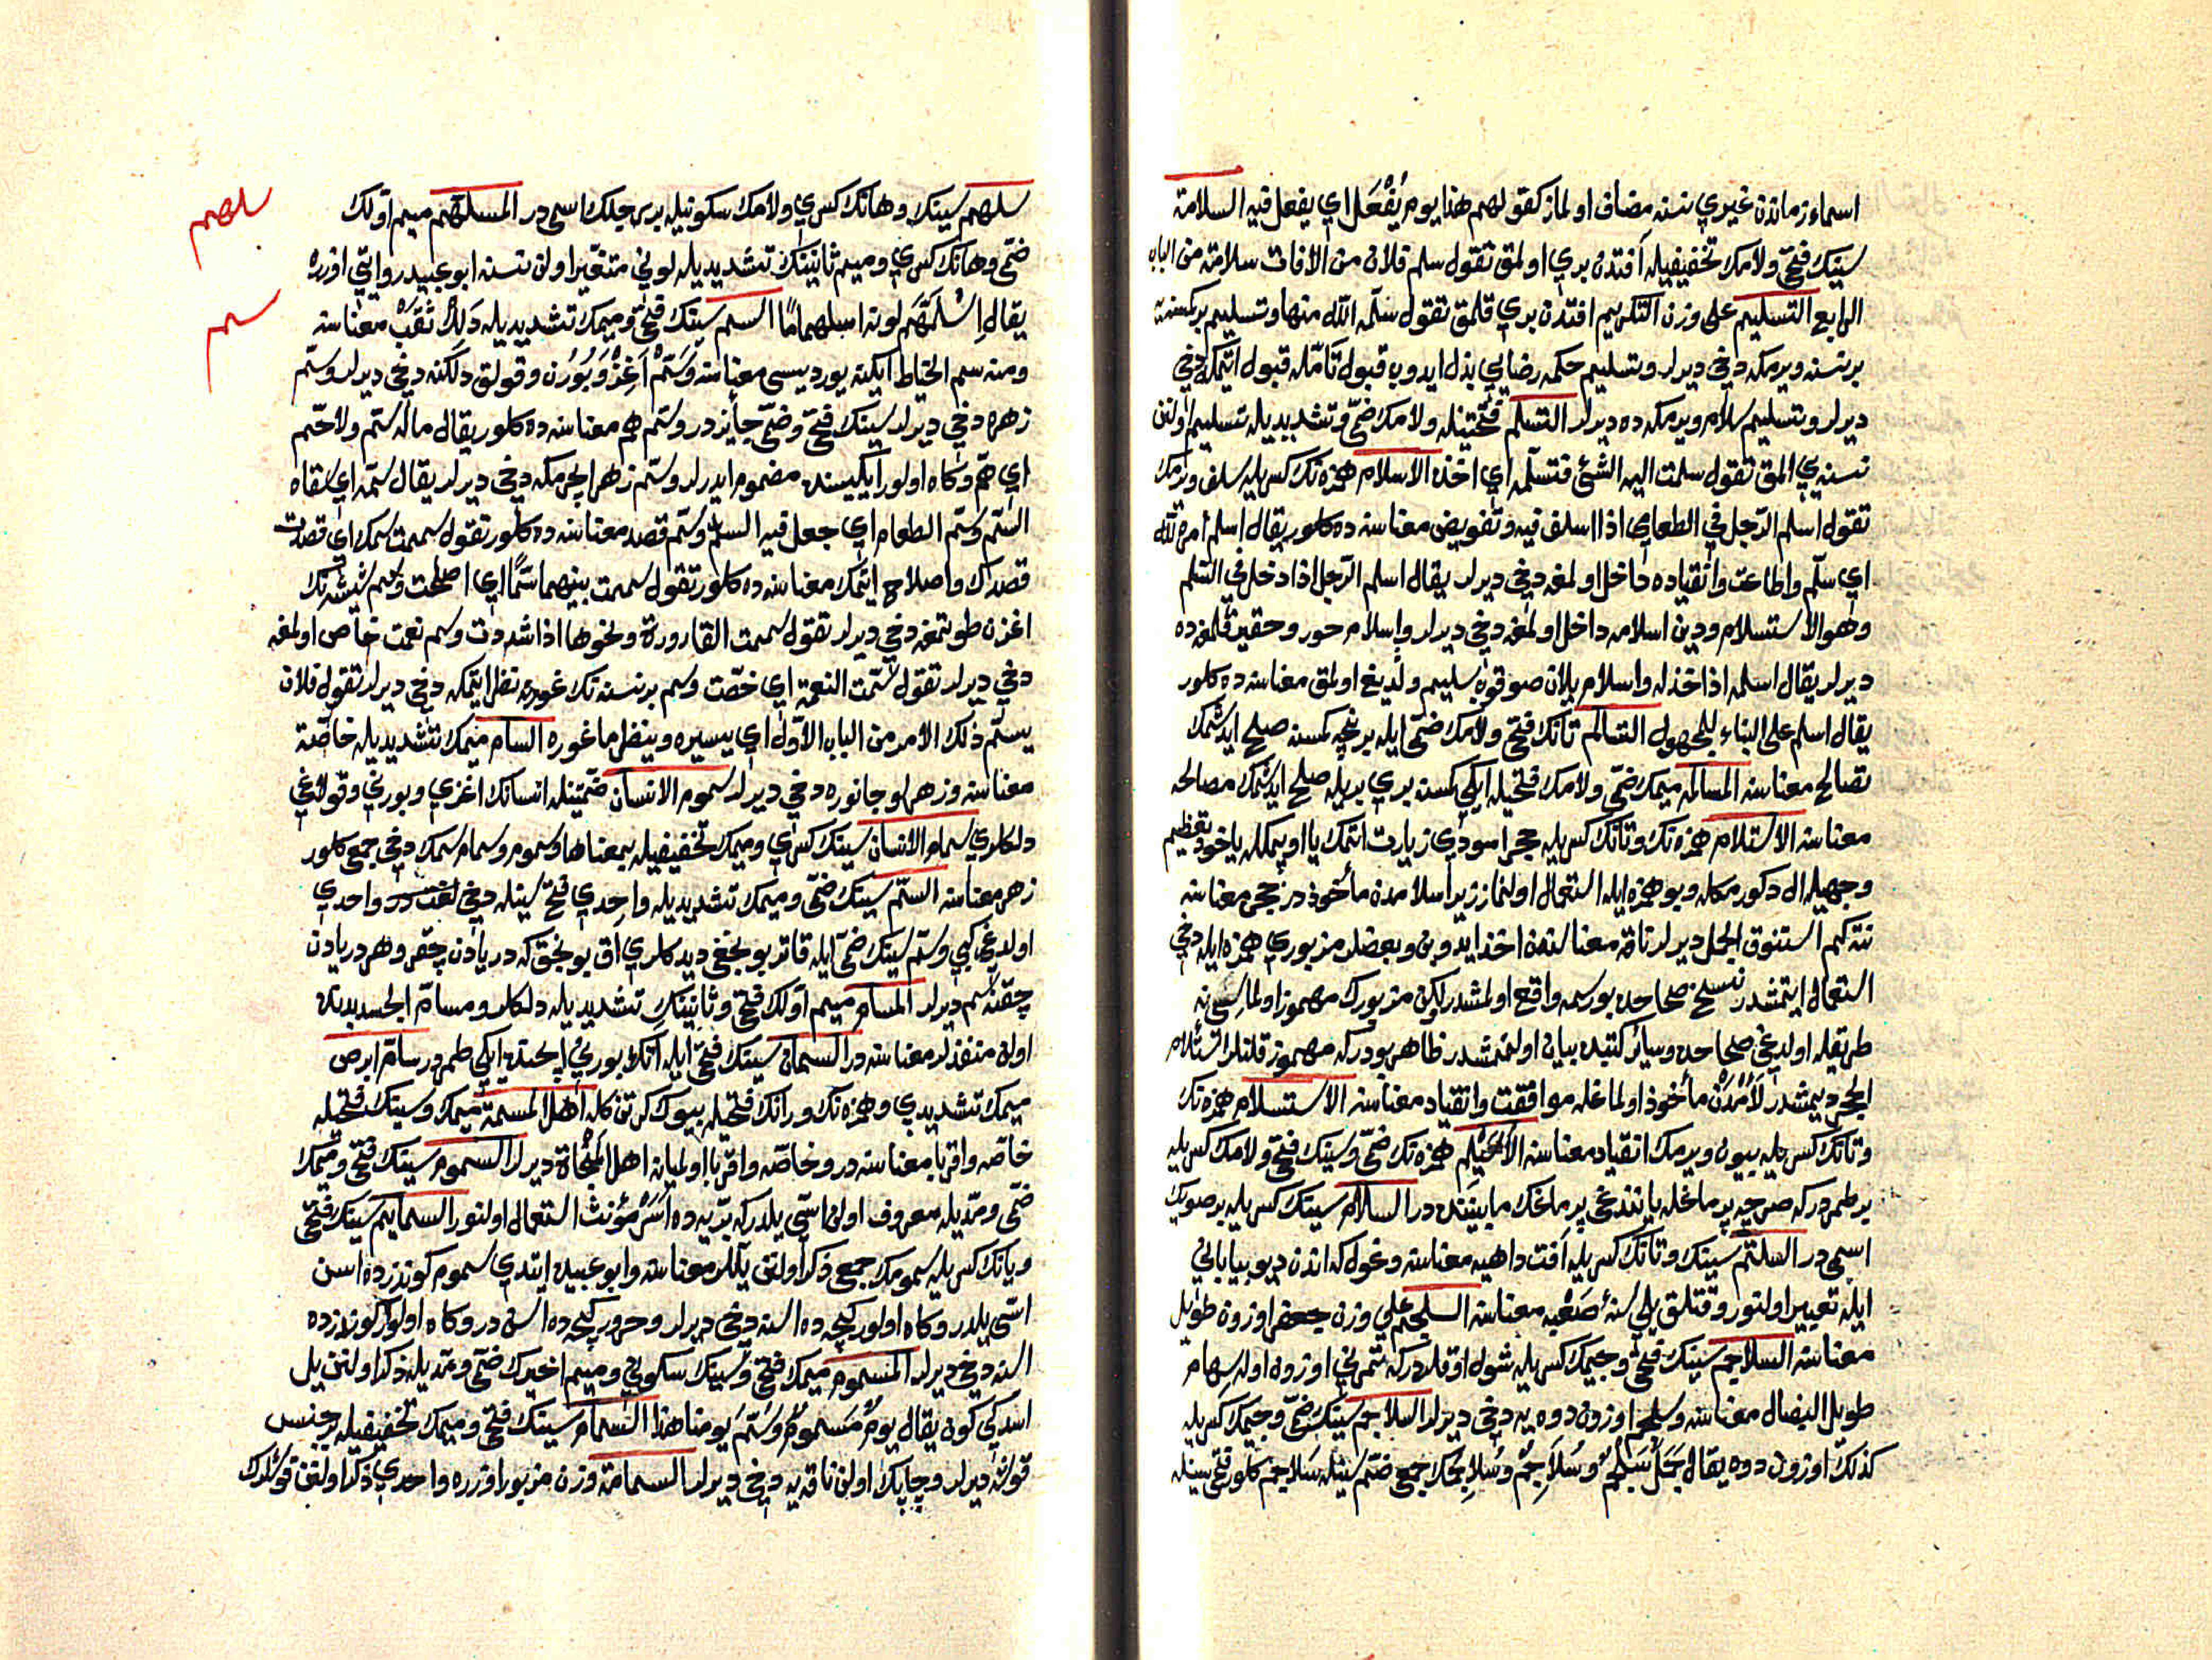 اسماء زماندن غيري نسنه مضاف اولماز كقولهم هذا يوم يُفْعَل اي يفعل فيه السلامة
سينك فتحى ولامك تخفيفيله آفتدن بري اولمق تقول سلم فلان من الآفات سلامة من الباب
الرابع التسليم على وزن التكريم افتدن بري قلمق تقول سلّمه الله منها وتسليم بر كسنه يه
بر نسنه ويرمكه دخي ديرلر وتسليم حكمه رضايي بذل ايدوب قبول تامّله قبول اتمكه دخي
ديرلر وتسليم سلام ويرمكه ده ديرلر التسلّم فتحتينله ولامك ضمّى وتشديديله تسليم اولنن
نسنه يي المق تقول سلمت اليه الشئ فتسلّمه اي اخذه الاسلام همزه نك كسريله سلف ويرمك
تقول اسلم الرّجل في الطعام اي اذا اسلف فيه وتفويض معناسنه ده كلور يقال اسلم امره لله
اي سلّم واطاعت وانقياده داخل اولمغه دخي ديرلر يقال اسلم الرّجل اذا دخل في السّلم
وهو الاستسلام ودين اسلامه داخل اولمغه دخي ديرلر واسلام خور وحقير قلمغه ده
ديرلر يقال اسلمه اذا خذله واسلام ييلان صوقوب سليم ولديغ اولمق معناسنه ده كلور
يقال اسلم على البناء للمجهول التسالم تانك فتحى ولامك ضمّى ايله بر نيچه كمسنه صلح ايدشمك
تصالح معناسنه المسالمة ميمك ضمّى ولامك فتحيله ايكي كمسنه بري بريله صلح ايدشمك مصالحه
معناسنه الاستلام همزه نك وتانك كسريله حجر اسودي زيارت اتمك يا اوپمكله ياخود تعظيم
وجهيله ال دكورمكله وبو همزه ايله استعمال اولنماز زيرا سلامدن مأخوذدر حجر معناسنه
نته كيم استنوق الجمل ديرلر ناقه معناسندن اخذ ايدوب وبعضلر مزبوري همزه ايله دخي
استعمال ايتمشدر نسخ صحاحده بو رسمه واقع اولمشدر ليكن مزبورك مهموز اولماسي نه
طريقله اولدغي صحاحده وسائر كتبده بيان اولنمشدر ظاهر بودركه مهموز قلنلر استئلام
الحجر ديمشدر لَأْمَدن مأخوذ اولماغله موافقت وانقياد معناسنه الاستسلام همزه نك
وتانك كسريله بيون ويرمك انقياد معناسنه الأسَيْلِم همزه نك ضمّى وسينك فتحى ولامك كسريله
بر طمردركه صرچه پرماغله يانندغي پرماغك مابيننده در السلام سينك كسريله بر صويك
اسمى در السلتم سينك وتانك كسريله آفت داهيه معناسنه وغول كه اندن ديو بياباني
ايله تعبير اولنور وقتلق يلي سنهٔ صَعْبه معناسنه السلجم على وزن جعفر اوزون طويل
معناسنه السلاجم سينك فتحى وجيمك كسريله شول اوقلردركه تمرني اوزون اوله سهام
طويل النصال معناسنه وسلجم اوزون دوه يه دخي ديرلر السلاجم سينك ضمّى وجيمك كسريله
كذلك اوزون دوه يقال جَمَل سَلْجَم وسُلَاجِم وسُلَاجِمك جمعي ضمّ سينله سلاجم كلور فتح سينله
سلهم سينك وهانك كسري ولامك سكونيله بر رجلك اسمى در المسلهمّ ميم اوّلك
ضمّى وهانك كسري وميم ثانينك تشديديله لوني متغير اولن نسنه ابو عبيد روايتي اوزره
يقال اِسْلَهَمَّ لونه اسلهماما السم سينك فتحى وميمك تشديديله دَلِك ثقب معناسنه
ومنه سم الخياط ايكنه يوردیسی معناسنه وسَمّ اَغِز وبُورُن وقولق دلكنه دخي ديرلر وسمّ
زهره دخي ديرلر سينك فتحى وضمّى جايزدر وسمّ هم معناسنه ده كلور يقال ماله سمّ ولا حمّ
اي همّ وكاه اولور ايكيسنده مضموم ايدرلر وسمّ زهر ايچرمكه دخي ديرلر يقال سمّه اي سقاه
السّم وسمّ الطعام اي جعل فيه السمّ وسمّ قصد معناسنه ده كلور تقول سممت سمك اي قصدت
قصدك واصلاح ايتمك معناسنه ده كلور تقول سممت بينهما سمًّا اي اصلحت وسم شيشه نك
اغزن طوتمغه دخي ديرلر تقول سممت القارورة ونحوها اذا شددت وسم نعمت خاص اولمغه
دخي ديرلر تقول سمّت النعمة اي خصّت وسم بر نسنه نك غورينه نظر ايتمكه دخي ديرلر تقول فلان
يسمّ ذلك الامر من الباب الاوّل اي يسبره وينظر ما غوره السام ميمك تشديديله خاصّة
معناسنه وزهرلو جانوره دخي ديرلر سموم الانسان ضمّتينله انسانك اغزي وبورني وقولاغي
دلكلري سمام الانسان سينك كسري وميمك تخفيفيله بمعناها وسموم وسمام سمك دخي جمعي كلور
زهر معناسنه السمّ سينك ضمّى وميمك تشديديله واحدي فتح سينله دخي لغتدر واحدي
اولدغي كبي وسمّ سينك ضمّى ايله قاتر بونجغي ديدكلري اق بونجق كه دريادن چقر وهر دريادن
چقنه سم ديرلر المسام ميم اوّلك فتحى وثانينك تشديديله دلكلر ومسامّ الجسد بدنده
اولن منفذلر معناسنه در السمان سينك فتحى ايله آتك بورني ايچنده ايكي طمردر سامّ ابرص
ميمك تشديدي وهمزه نك ورانك فتحيله بيوك كرتن كله اهل المسمة ميمك وسينك فتحيله
خاصّه واقربا معناسنه در وخاصّه واقربا اولميانه اهل المنحاة ديرلر السموم سينك فتحى وميمك
ضمّى ومدّيله معروف اولن اسّي يلدركه بدّيه ده اسر مؤنث استعمال اولنور السمايم سينك فتحى
ويانك كسريله سمومك جمعي ذكر اولنن يللر معناسنه وابو عبيده ايتدي سموم كوندزده اسن
اسّي يلدر وكاه اولور كيجه ده اسنه دخي ديرلر وحرور كيجه ده اسندر وكاه اولور كوندزده
اسنه دخي ديرلر المسموم ميمك فتحى وسينك سكوني وميم اخيرك ضمّى ومدّيله ذكر اولنن يل
اسدكي كون يقال يومٌ مَسْمومٌ وسُمّ يومنا هذا السمام سينك فتحى وميمك تخفيفيله بر جنس
قوشه ديرلر وچاپك اولن ناقه يه دخي ديرلر السمامة وزن مزبور اوزره واحدي ذكر اولنن قوشلرك
سلهم
سمم